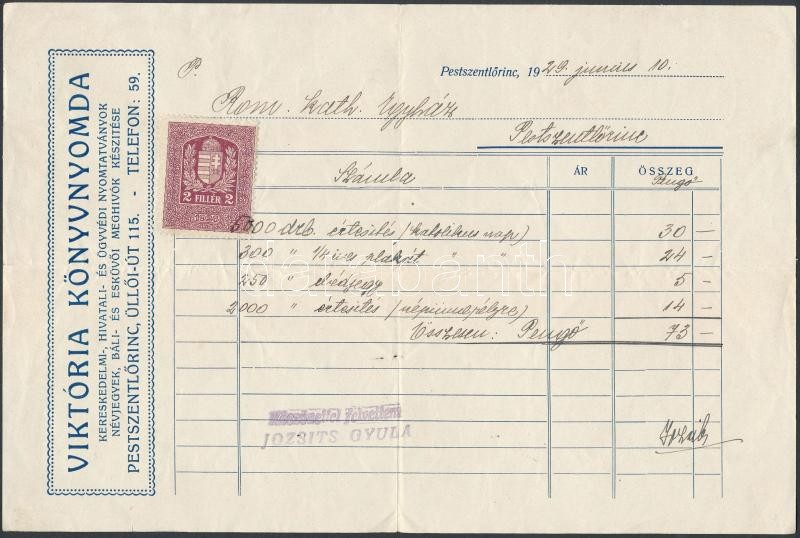 VIKTÓRIA KÖNYVNYOMDA
KERESKEDELMI-, HIVATALI- ÉS ÜGYVÉDI NYOMTATVÁNYOK
NÉVJEGYEK, BÁLI- ÉS ESKÜVŐI MEGHIVÓK KÉSZITÉSE
PESTSZENTLŐRINC, ÜLLŐI-ÚT 115. - TELEFON: 59.
Pestszentlőrinc, 1929. június 10.
P.
Rom. kath. Egyház
Pestszentlőrinc
2 FILLÉR 2
Számla ÁR ÖSSZEG
Pengő
5000 drb. értesités (katolikus nap) 30 —
300 " 14 ives plakát " " 24 —
250 " 5 —
2000 " értesités (népünnepélyre) 14 —
Összesen: Pengő 73 —
Köszönettel felvettem
JOZSITS GYULA